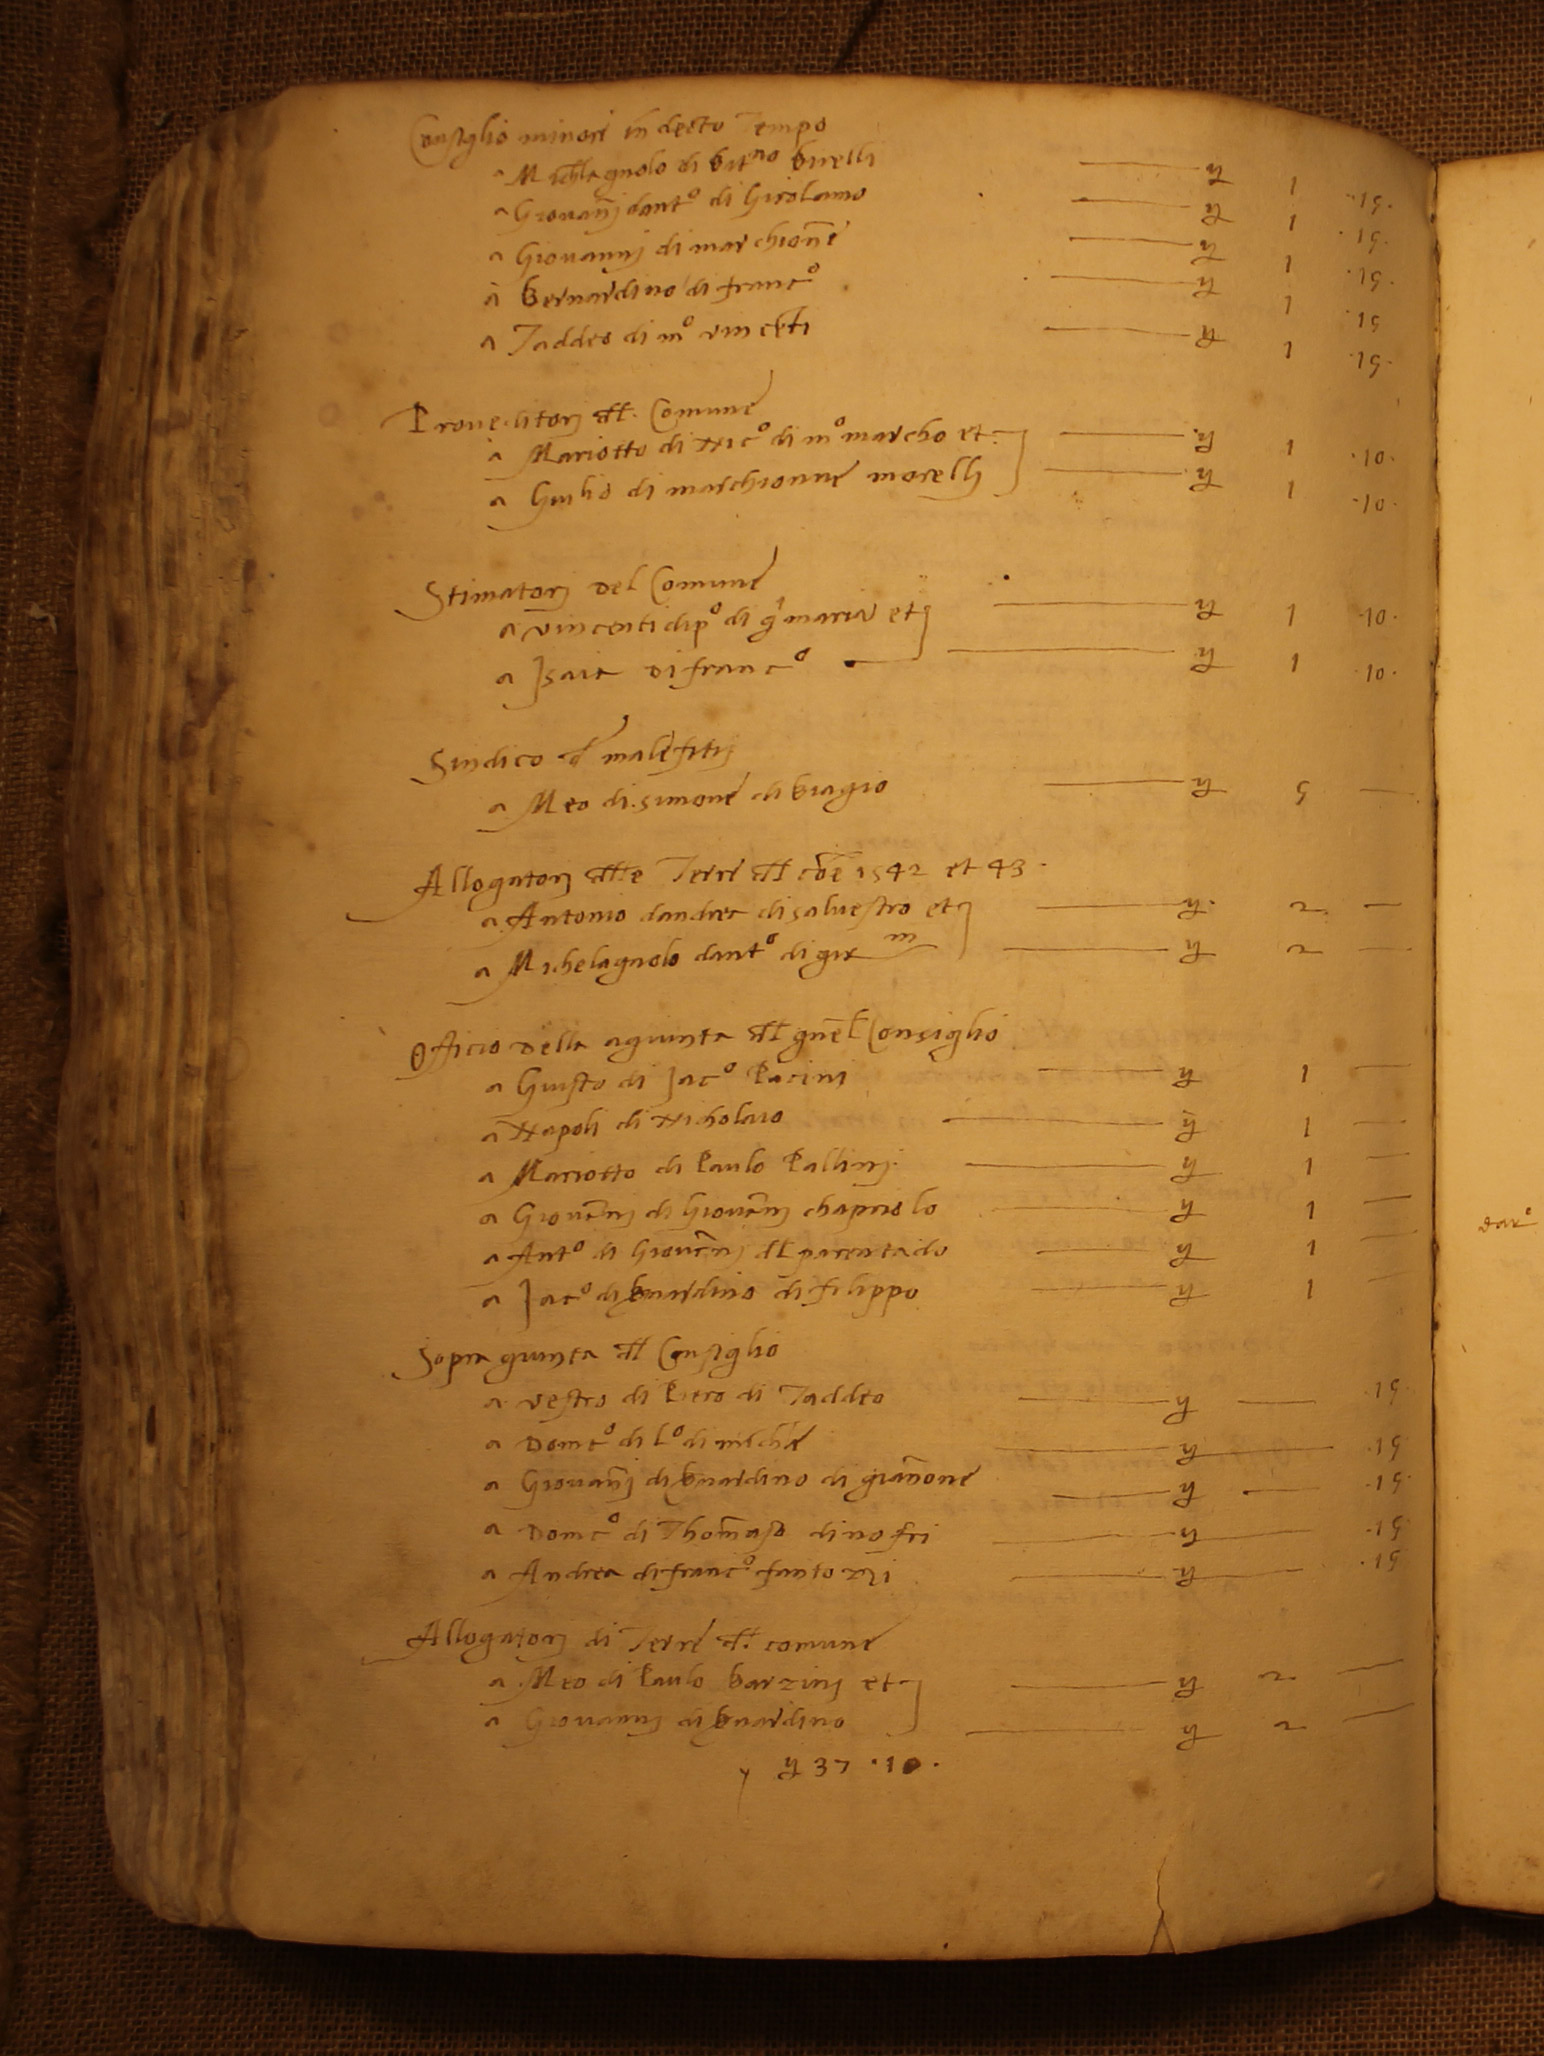 Consiglio minore in decto Tempo
a Michelagnolo di Bat.no Burelli £ 1 .15.
a Giovanni dant.o di Girolamo £ 1 .15.
a Giovanni di marchione £ 1 .15.
a Bernardino di franc.o £ 1 .15
a Taddeo di m.o vincenti £ 1 .15.
Proveditori del Comune
a Mariotto di Nic.o di m.o marcho et £ 1 .10.
a Giulio di marchionne morelli £ 1 .10.
Stimatori del Comune
a vincenti di p.o di maria et £ 1 .10.
a Isaia di franc.o £ 1 .10.
Sindico de malefitij
a Meo di simone di biagio £ 5 —
Allogatori delle Terre del coe 1542 et 43.
a Antonio dandrea di salvestro et £ 2 —
a Michelagnolo dant.o di gir.mo £ 2 —
Officio della agiunta del gnel Consiglio
a Giusto di Jac.o Pacini £ 1 —
a Napoli di Nicholaio £ 1 —
a Mariotto di Paulo Pallini £ 1 —
a Giovanni di Giovanni chapriolo £ 1 —
a Ant.o di Giovanni del parentado £ 1 —
a Jac.o di bnardino di filippo £ 1 —
Sopra giunta del Consiglio
a vestro di Piero di Taddeo £ — .15.
a Domc.o di L.o di miche £ — .15.
a Giovanni di bnardino di gianone £ — .15.
a Domc.o di Thomaso dinofri £ — .15.
a Andrea di franc.o fantozzi £ — .15.
Allogatori di Terre del comune
a Meo di Paulo barzini et £ 2 —
a Giovanni di bnardino £ 2 —
£ 37 .10.